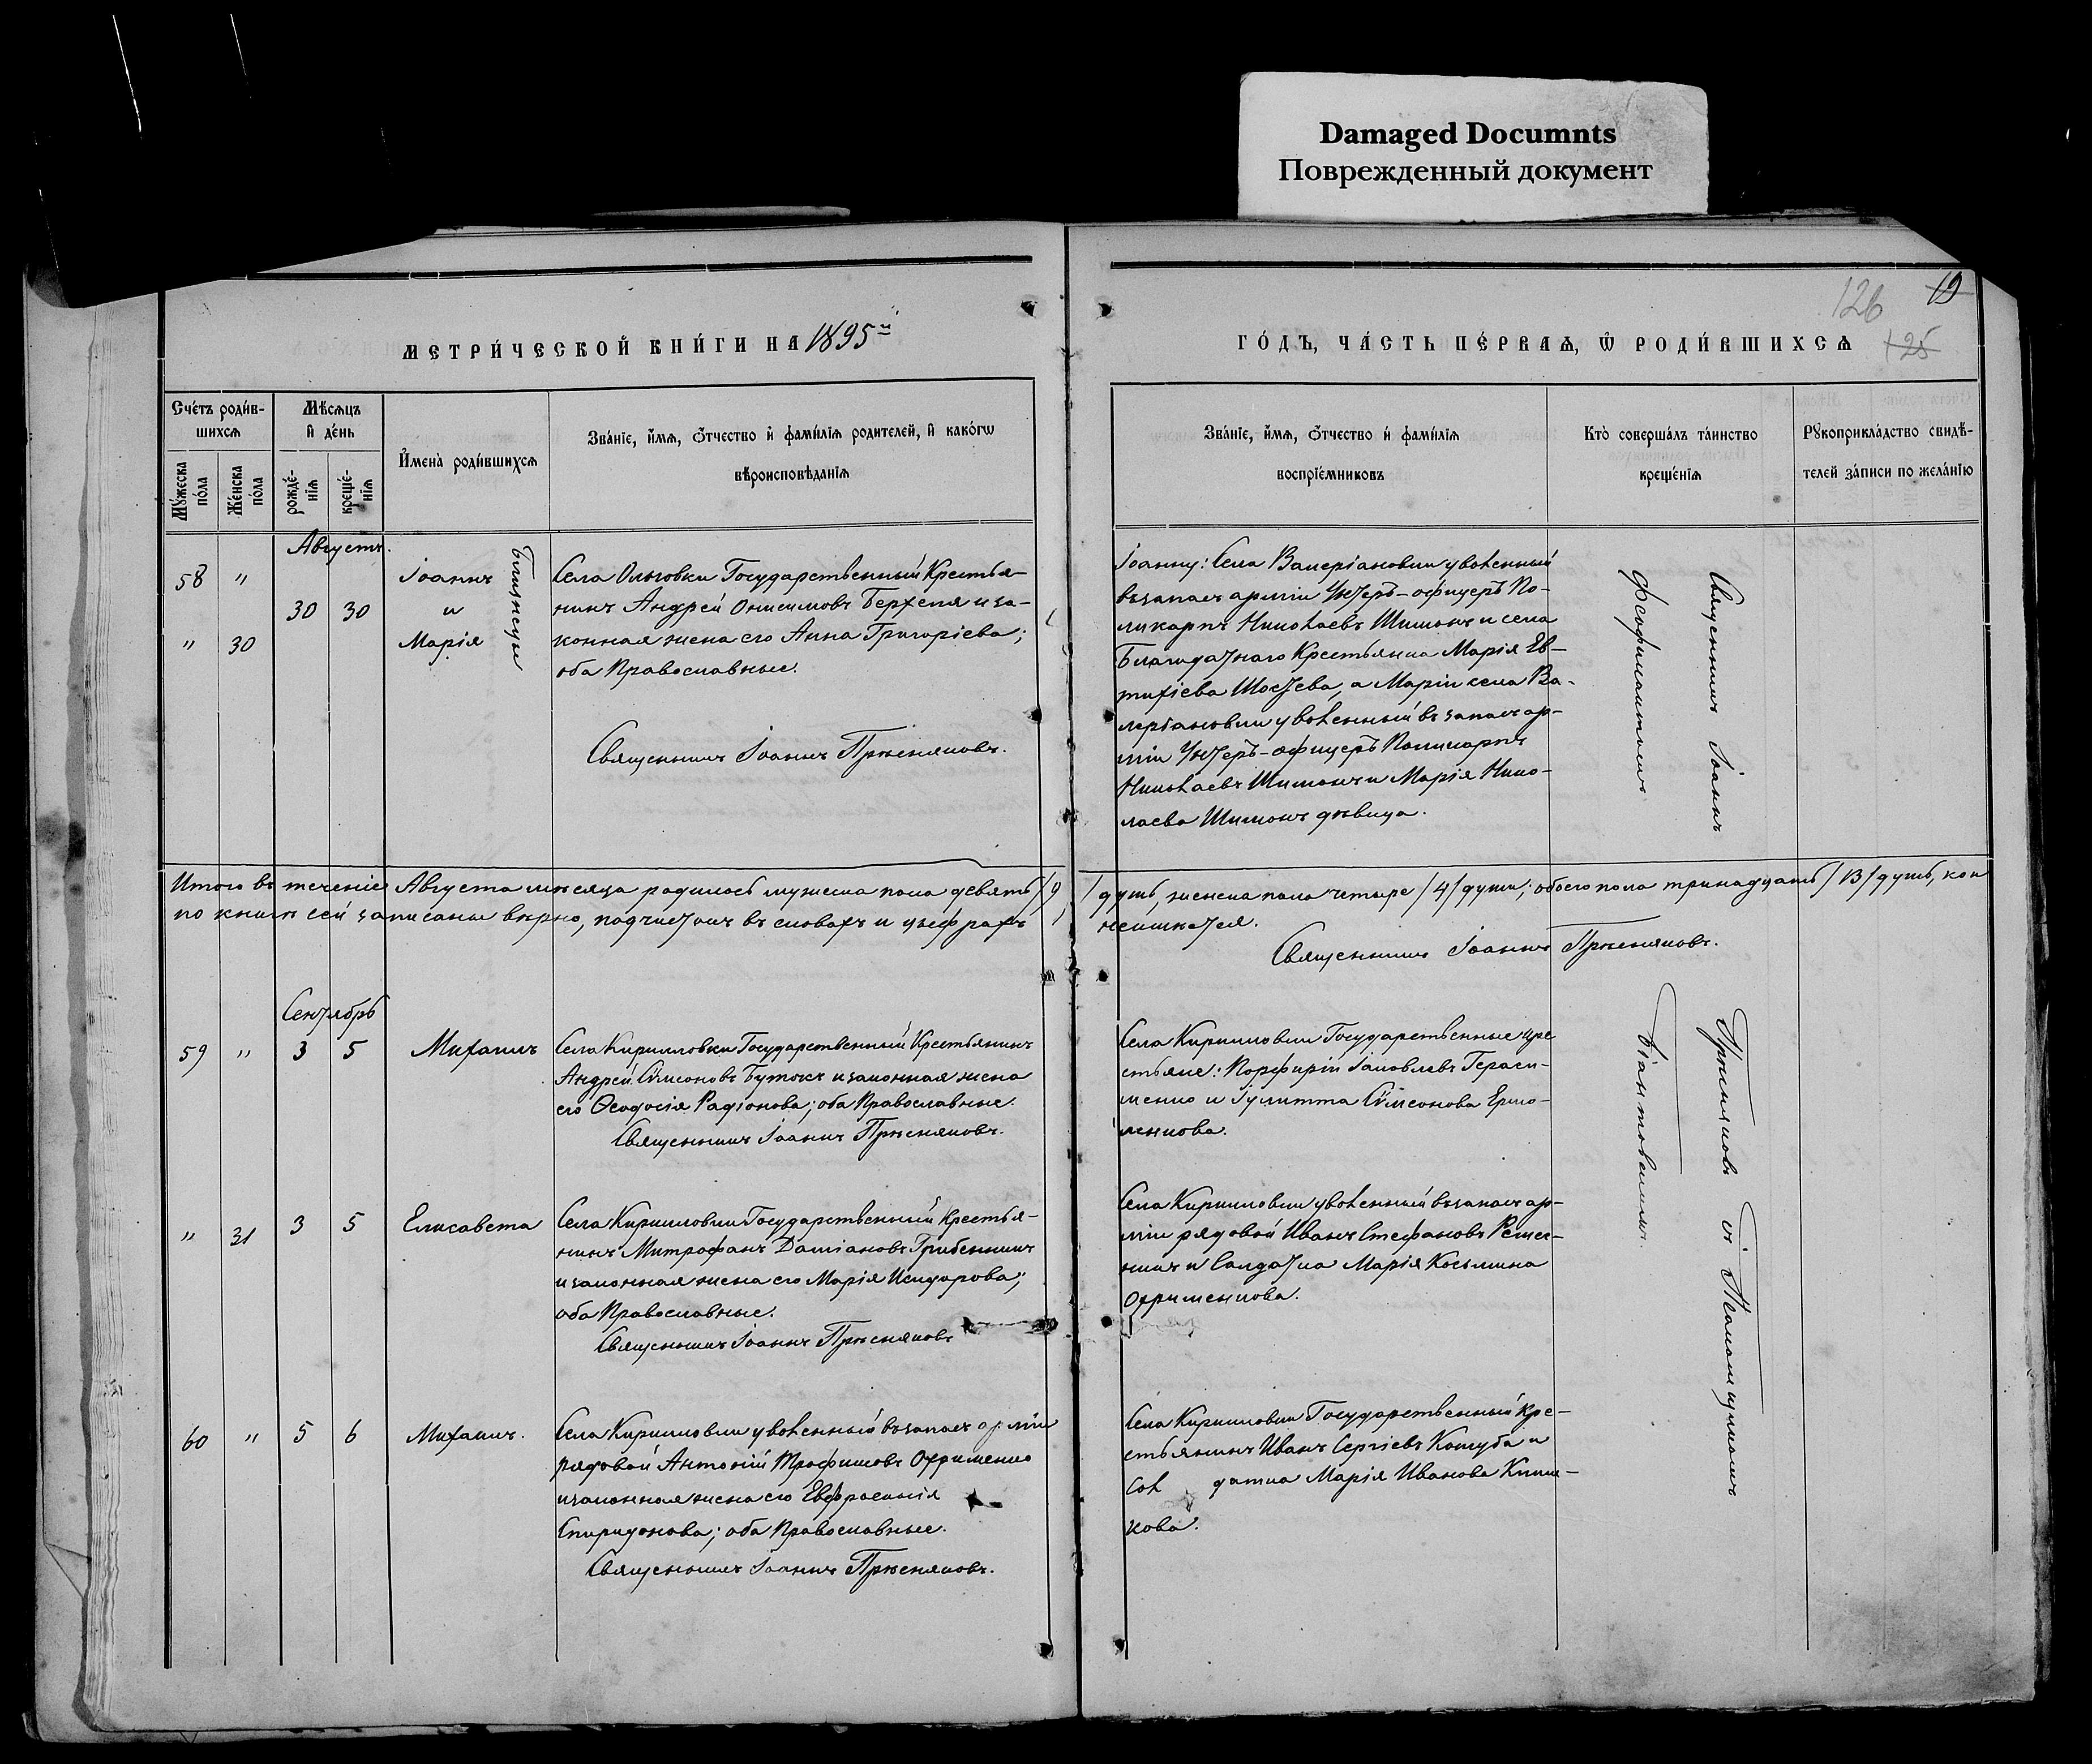 Damaged Documnts
Поврежденный документ
126
19
125
МЕТРИ́ЧЕСКОЙ КНИ́ГИ НА 1895й
ГО́ДЪ, ЧА́СТЬ ПЕ́РВАѦ, Ѿ РОДИ́ВШИХСѦ
Сче́тъ роди́в-
шихсѧ
Мѣсѧцъ
и҆ де́нь
Му́жеска
по́ла
Же́нска
по́ла
рожде́-
нїѧ
креще́-
нїѧ
И҆мена̀ роди́вшихсѧ
Зва́нїе, и҆́мѧ, ѻ҆́тчество и҆ фами́лїѧ родителей, и҆ како́гѡ
вѣроисповѣданїѧ
Зва́нїе, и҆́мѧ, ѻ҆́тчество и҆ фами́лїѧ
воспрїе́мниковъ
Кто̀ соверша́лъ та́инство
креще́нїѧ
Рꙋкоприкла́дство свидѣ́-
телей за́писи по жела́нїю
Августъ.
58 "
30 30
" 30
Іоаннъ
и
Марія
Близнецы
Села Ольговки Государственный Крестья-
нинъ Андрей Онисимовъ Берхеля и за-
конная жена его Анна Григоріева;
оба Православные.
Священникъ Іоаннъ Прѣсняковъ.
Іоанну: Села Валеріановки уволенный
въ запасъ арміи Унтеръ-офицеръ По-
ликарпъ Николаевъ Шимонъ и села
Благодатнаго Крестьянка Марія Ев-
тихіева Шостева, а Маріи села Ва-
леріановки уволенный въ запасъ ар-
міи Унтеръ-офицеръ Поликарпъ
Николаевъ Шимонъ и Марія Нико-
лаева Шимонъ дѣвица.
Священникъ Іоаннъ
Итого въ теченіе Августа мѣсяца родилось мужеска пола девять /9/ душъ, женска пола четыре /4/ души; обоего пола тринадцать /13/ душъ, кои
по книгѣ сей записаны вѣрно, подчистокъ въ словахъ и цыфрахъ
не имѣется.
Священникъ Іоаннъ Прѣсняковъ.
Сентябрь
59 " 3 5 Михаилъ
Села Кирилловки Государственный Крестьянинъ
Андрей Сѵмеоновъ Бутокъ и законная жена
его Ѳеодосія Радіонова; оба Православные.
Священникъ Іоаннъ Прѣсняковъ.
Села Кирилловки Государственные кре
стьяне: Порфирій Іаковлевъ Гераси-
менко и Іулитта Сѵмеонова Ермо-
ленкова.
Прѣсняковъ съ Псаломщикомъ
" 31 3 5 Елисавета
Села Кирилловки Государственный Крестья-
нинъ Митрофанъ Даміановъ Гребенникъ
и законная жена его Марія Исидорова;
оба Православные.
Священникъ Іоаннъ Прѣсняковъ
Села Кирилловки уволенный въ запасъ ар-
міи рядовой Иванъ Стефановъ Решет-
никъ и Салдатка Марія Косьмина
Охрименкова.
60 " 5 6 Михаилъ.
Села Кирилловки уволенный въ запасъ арміи
рядовой Антоній Трофимовъ Охрименко
и законная жена его Евфросинія
Спиридонова; оба Православные.
Священникъ Іоаннъ Прѣсняковъ.
Села Кирилловки Государственный кре-
стьянинъ Иванъ Сергіевъ Кошуба и
Сол датка Марія Иванова
кова.